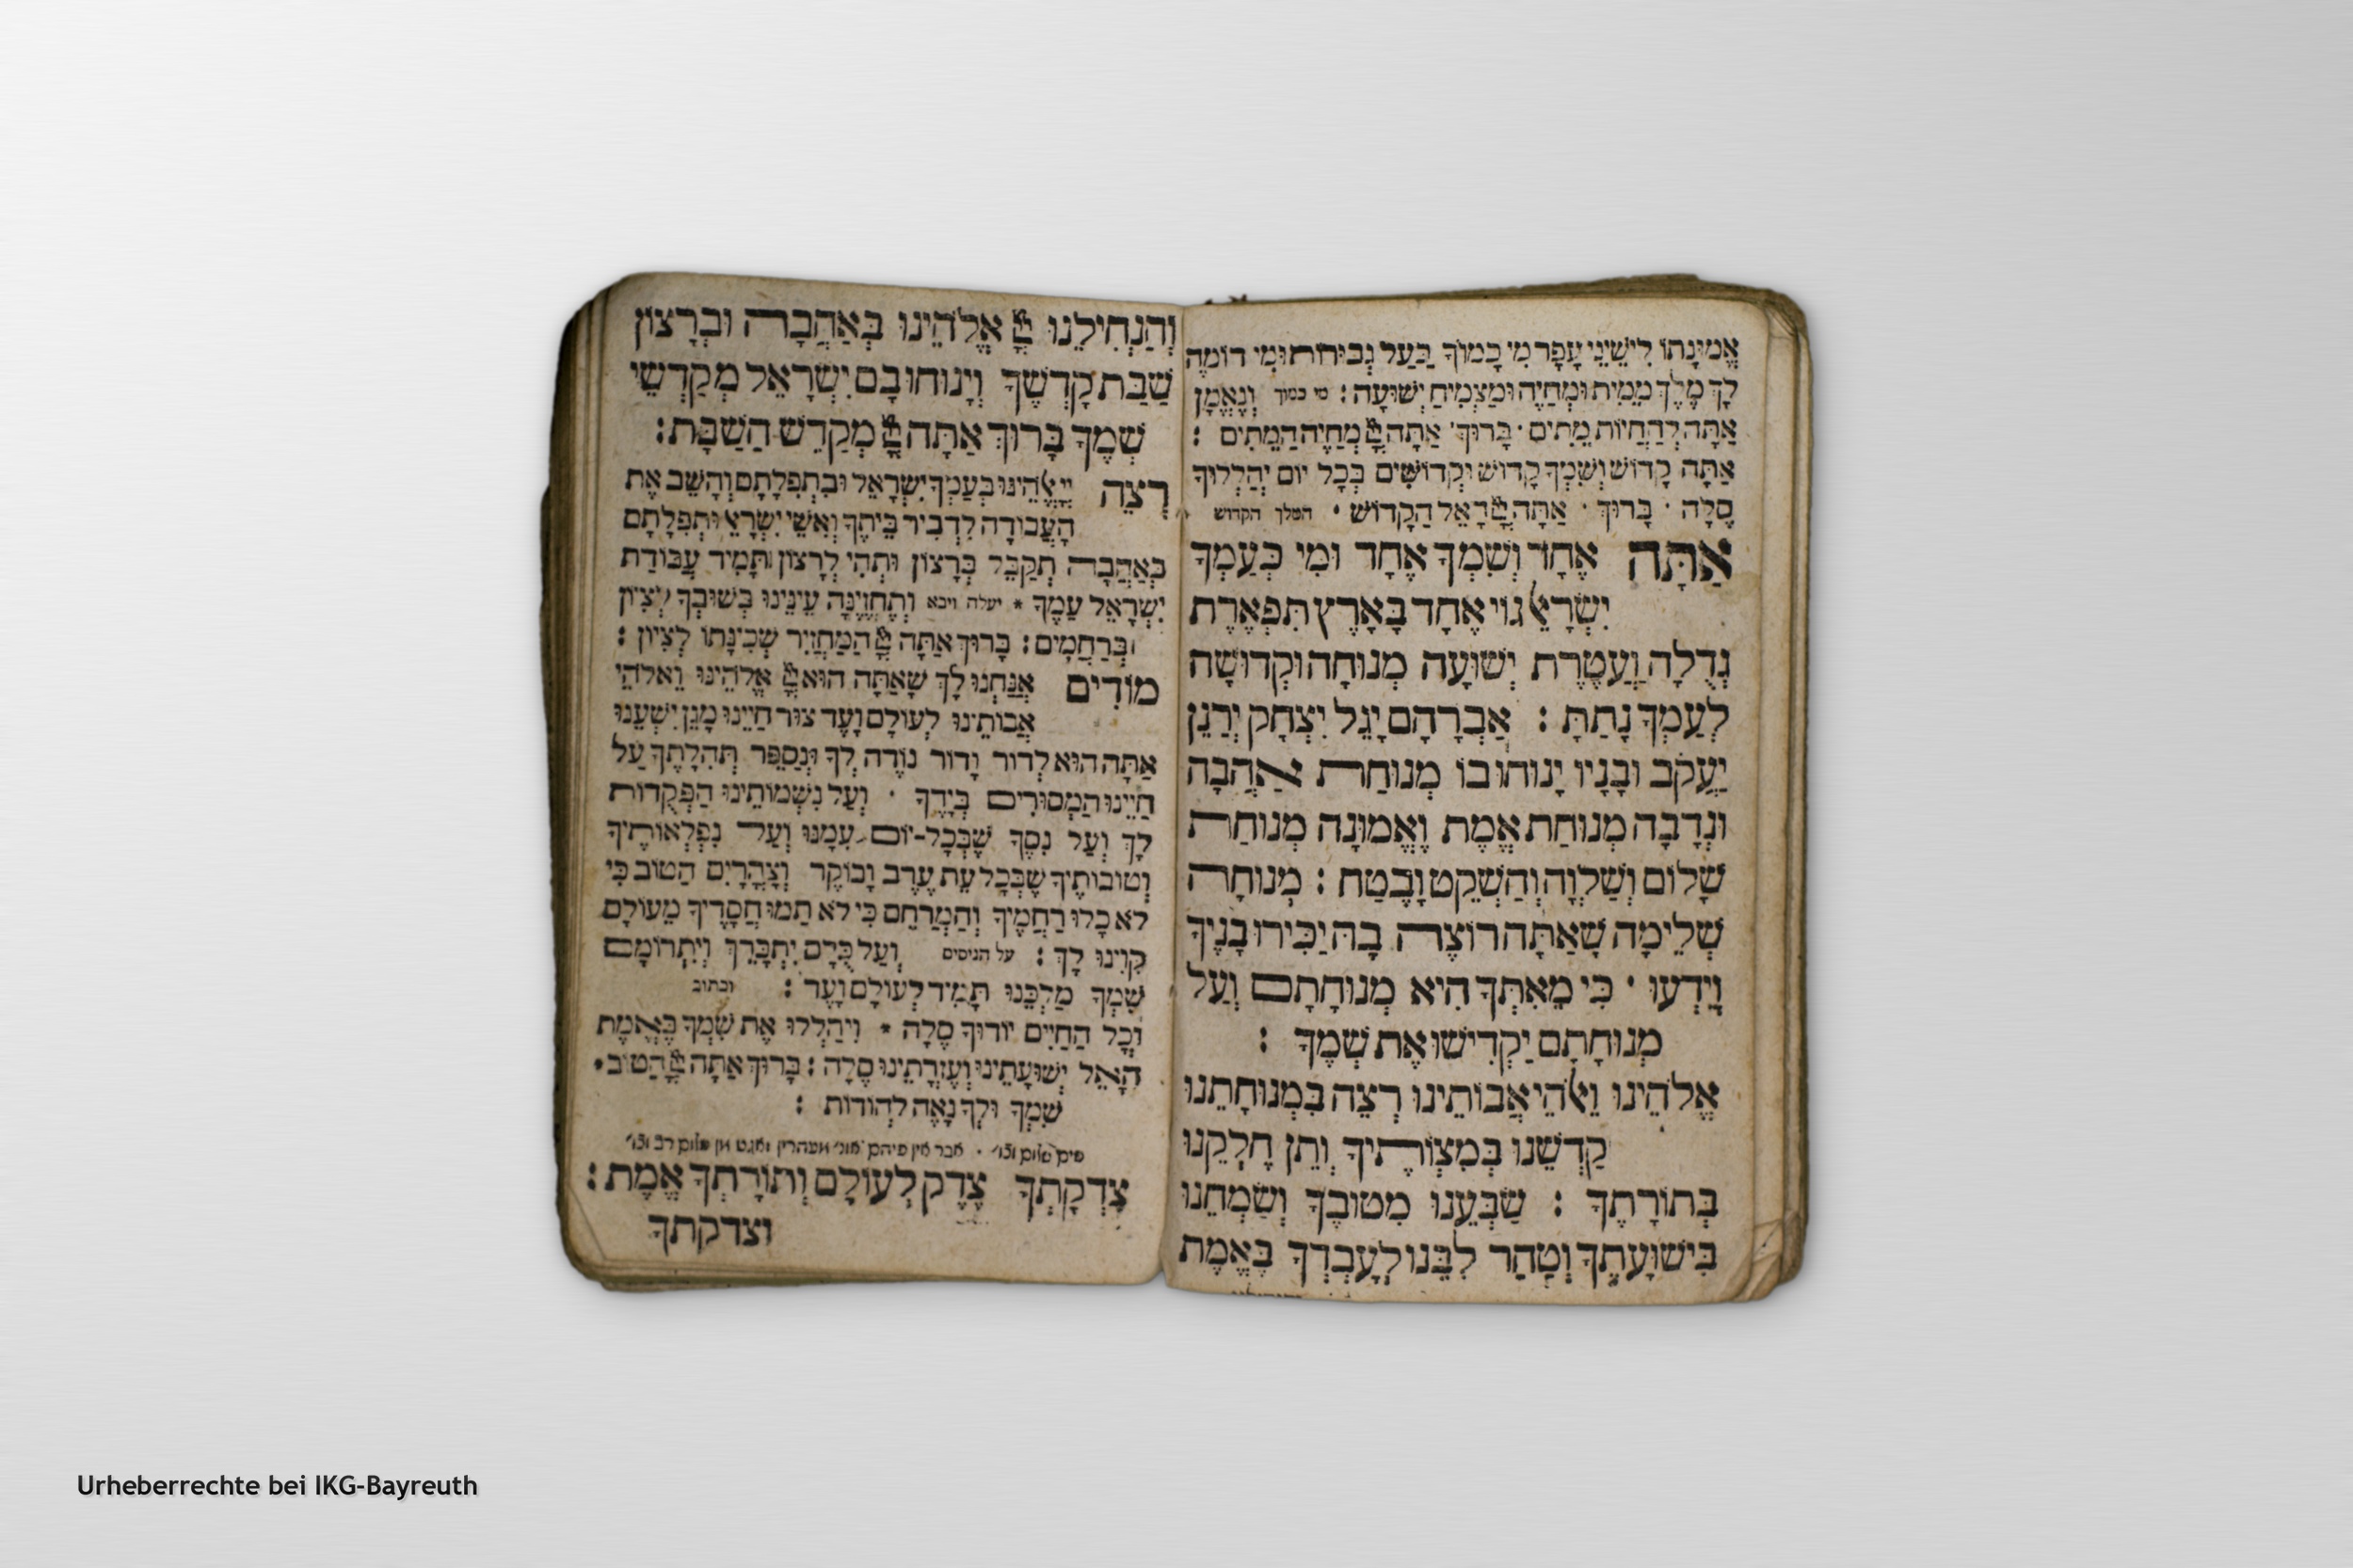 אֱמוּנָתוֹ לִישֵׁינֵי עָפָר מִי כָמוֹךָ בַּעַל גְּבוּרוֹת וּמִי דוֹמֶה
לָךְ מֶלֶךְ מֵמִית וּמְחַיֶה וּמַצְמִיחַ יְשׁוּעָה : מי כמוך וְנֶאֱמָן
אַתָּה לְהַחֲיוֹת מֵתִים · בָּרוּךְ · אַתָּה יְיָ מְחַיֵה הַמֵתִים :
אַתָּה קָדוֹשׁ וְשִׁמְךָ קָדוֹשׁ וּקְדוֹשִׁים בְּכָל יוֹם יְהַלְלוּךָ
סֶלָה · בָּרוּךְ · אַתָּה יְיָ הָאֵל הַקָדוֹשׁ · המלך הקדוש
אַתָּה אֶחָד וְשִׁמְךָ אֶחָד וּמִי כְּעַמְךָ
יִשְׂרָאֵל גּוֹי אֶחָד בָּאָרֶץ תִּפְאֶרֶת
גְדֻלָה וַעֲטֶרֶת יְשׁוּעָה מְנוּחָה וּקְדוּשָׁה
לְעַמְךָ נָתַתָּ : אַבְרָהָם יָגֵל יִצְחָק יְרַנֵן
יַעֲקֹב וּבָנָיו יָנוּחוּ בוֹ מְנוּחַת אַהֲבָה
וּנְדָבָה מְנוּחַת אֱמֶת וֶאֱמוּנָה מְנוּחַת
שָׁלוֹם וְשַׁלְוָה וְהַשְׁקֵט וָבֶטַח : מְנוּחָה
שְׁלֵימָה שָׁאַתָּה רוֹצֶה בָהּ יַכִּירוּ בָנֶיךָ
וְיֵדְעוּ · כִּי מֵאִתְּךָ הִיא מְנוּחָתָם וְעַל
מְנוּחָתָם יַקְדִישׁוּ אֶת שְׁמֶךָ :
אֱלֹהֵינוּ וֵאלֹהֵי אֲבוֹתֵינוּ רְצֵה בִּמְנוּחָתֵנוּ
קַדְשֵׁנוּ בְּמִצְוֹתֶיךָ וְתֵן חֶלְקֵנוּ
בְּתוֹרָתֶךָ : שַׂבְּעֵנוּ מִטוּבֶךָ וְשַׂמְחֵנוּ
בִּישׁוּעָתֶךָ וְטַהֵר לִבֵּנוּ לְעָבְדְךָ בֶּאֱמֶת
וְהַנְחִילֵנוּ יְיָ אֱלֹהֵינוּ בְּאַהֲבָה וּבְרָצוֹן
שַׁבַּת קָדְשֶׁךָ וְיָנוּחוּ בָם יִשְׂרָאֵל מְקַדְשֵׁי
שְׁמֶךָ בָּרוּךְ אַתָּה יְיָ מְקַדֵשׁ הַשַׁבָּת :
רְצֵה יְיָ אֱלֹהֵינוּ בְּעַמְךָ יִשְׂרָאֵל וּבִתְפִלָתָם וְהָשֵׁב אֶת
הָעֲבוֹדָה לִדְבִיר בֵּיתֶךָ וְאִשֵׁי יִשְׂרָאֵל וּתְפִלָתָם
בְּאַהֲבָה תְקַבֵּל בְּרָצוֹן וּתְהִי לְרָצוֹן תָּמִיד עֲבוֹדַת
יִשְׂרָאֵל עַמֶךָ * יעלה ויבא וְתֶחֱזֶינָה עֵינֵינוּ בְּשׁוּבְךָ לְצִיוֹן
בְּרַחֲמִים : בָּרוּךְ אַתָּה יְיָ הַמַחֲזִיר שְׁכִינָתוֹ לְצִיוֹן :
מוֹדִים אֲנַחְנוּ לָךְ שָׁאַתָּה הוּא יְיָ אֱלֹהֵינוּ וֵאלֹהֵי
אֲבוֹתֵינוּ לְעוֹלָם וָעֶד צוּר חַיֵינוּ מָגֵן יִשְׁעֵנוּ
אַתָּה הוּא לְדוֹר וָדוֹר נוֹדֶה לְךָ וּנְסַפֵּר תְּהִלָתֶךָ עַל
חַיֵינוּ הַמְסוּרִים בְּיָדֶךָ · וְעַל נִשְׁמוֹתֵינוּ הַפְּקֻדוֹת
לָךְ וְעַל נִסֶךָ שֶׁבְּכָל-יוֹם עִמָנוּ וְעַל נִפְלְאוֹתֶיךָ
וְטוֹבוֹתֶיךָ שֶׁבְּכָל עֵת עֶרֶב וָבוֹקֶר וְצָהֳרָיִם הַטוֹב כִּי
לֹא כָלוּ רַחֲמֶיךָ וְהַמְרַחֵם כִּי לֹא תַמוּ חֲסָדֶיךָ מֵעוֹלָם
קִוִינוּ לָךְ : על הניסים וְעַל כֻּלָם יִתְבָּרֵךְ וְיִתְרוֹמָם
שִׁמְךָ מַלְכֵּנוּ תָּמִיד לְעוֹלָם וָעֶד : וכתוב
וְכָל הַחַיִים יוֹדוּךָ סֶלָה * וִיהַלְלוּ אֶת שִׁמְךָ בֶּאֱמֶת
הָאֵל יְשׁוּעָתֵינוּ וְעֶזְרָתֵינוּ סֶלָה : בָּרוּךְ אַתָּה יְיָ הַטוֹב ·
שִׁמְךָ וּלְךָ נָאֶה לְהוֹדוֹת :
שים שלום וכו׳ · אבר אין פיהם אונ׳ מעהרין זאגט מן שלום רב וכו׳
צִדְקָתְךָ צֶדֶק לְעוֹלָם וְתוֹרָתְךָ אֱמֶת :
וצדקתך
Urheberrechte bei IKG-Bayreuth